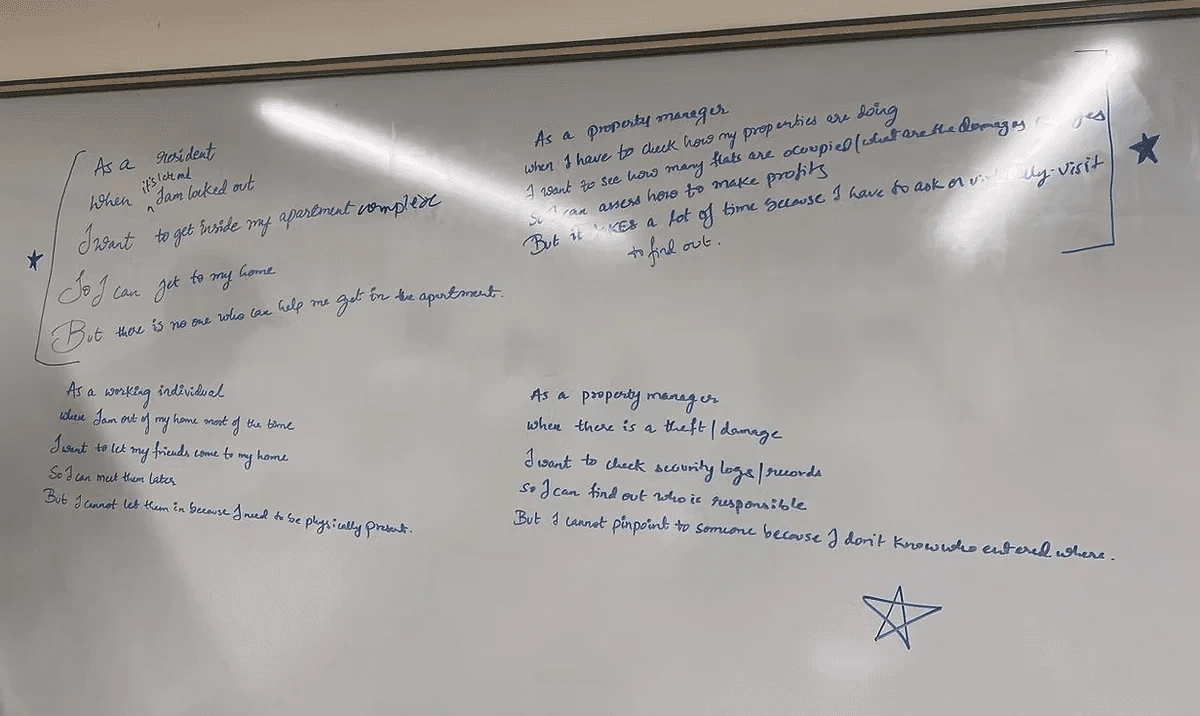 As a resident
When it's late and I am locked out
I want to get inside my apartment complex
So I can get to my home
But there is no one who can help me get in the apartment.
As a property manager
when I have to check how my properties are doing
I want to see how many flats are occupied/what are the damages
So I can assess how to make profits
But it takes a lot of time because I have to ask or visit
to find out.
As a working individual
when I am out of my home most of the time
I want to let my friends come to my home
So I can meet them later
But I cannot let them in because I need to be physically present.
As a property manager
when there is a theft/damage
I want to check security logs/records
So I can find out who is responsible
But I cannot pinpoint to someone because I don't know who entered where.